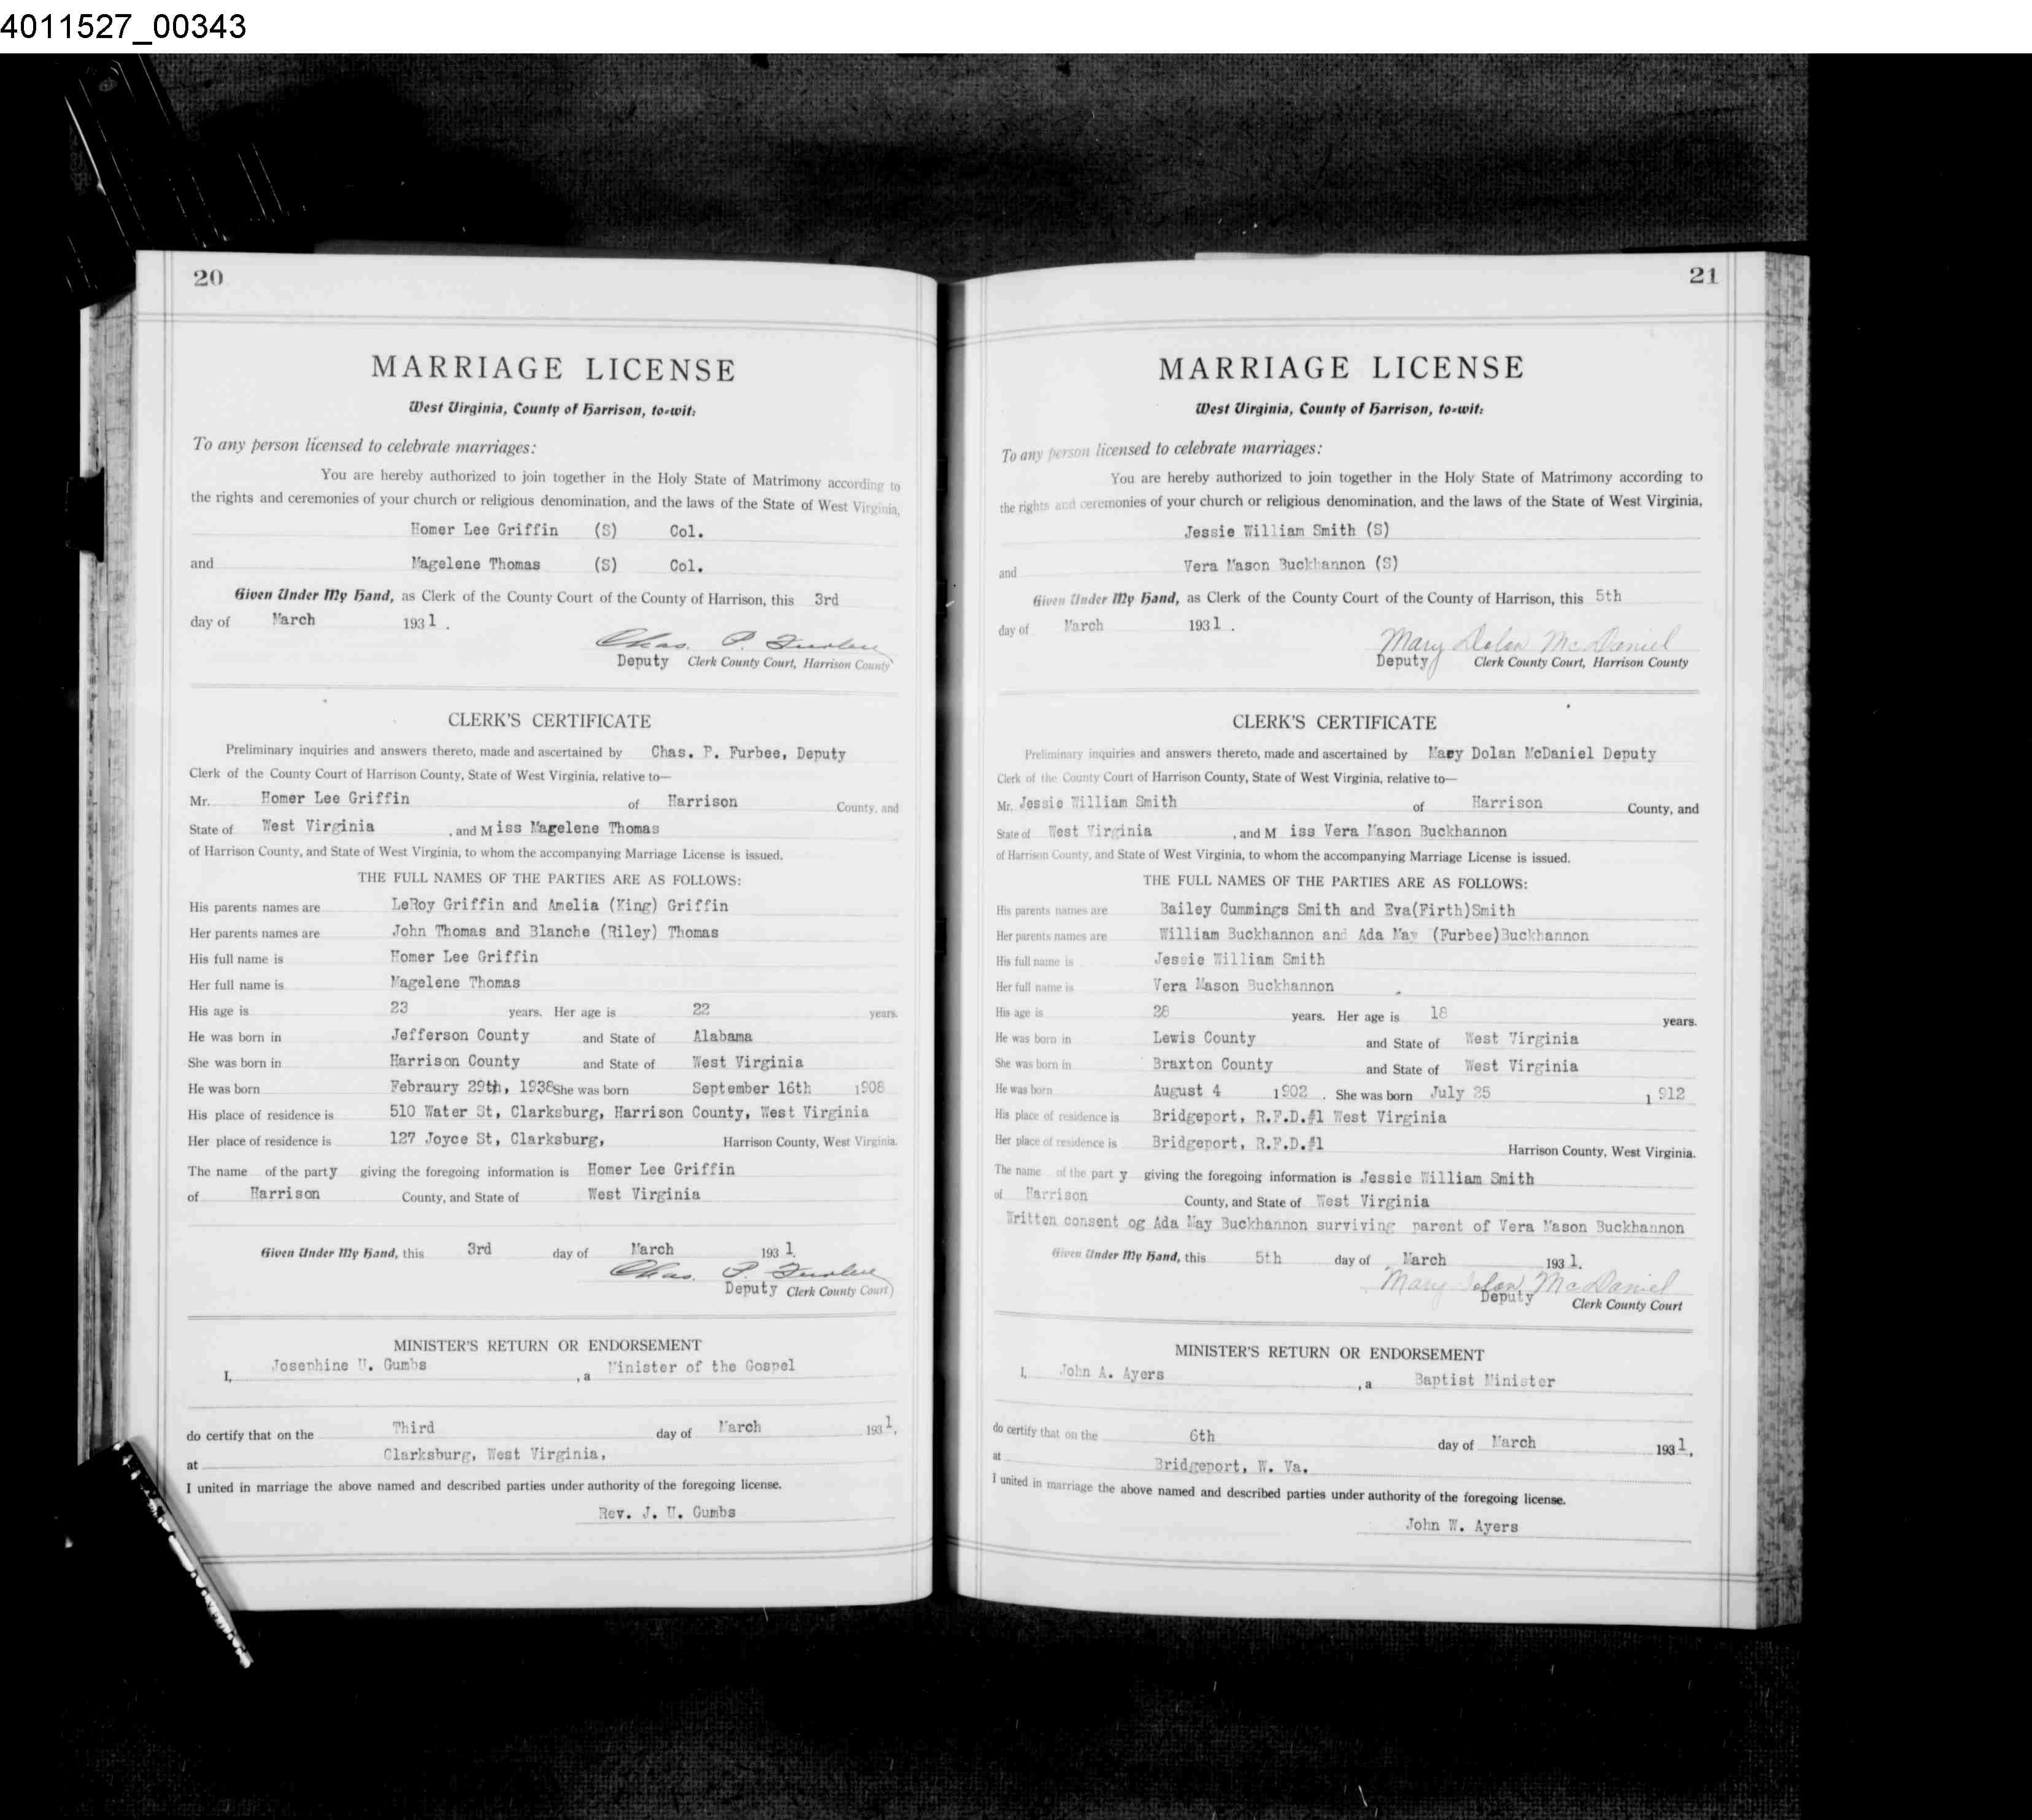 4011527_00343
20
MARRIAGE LICENSE
West Virginia, County of Harrison, to=wit:
To any person licensed to celebrate marriages:
You are hereby authorized to join together in the Holy State of Matrimony according to
the rights and ceremonies of your church or religious denomination, and the laws of the State of West Virginia,
Homer Lee Griffin (S) Col.
and Magelene Thomas (S) Col.
Given Under My Hand, as Clerk of the County Court of the County of Harrison, this 3rd
day of March 1931.
Chas. P. Furbee
Deputy Clerk County Court, Harrison County
CLERK'S CERTIFICATE
Preliminary inquiries and answers thereto, made and ascertained by Chas. P. Furbee, Deputy
Clerk of the County Court of Harrison County, State of West Virginia, relative to—
Mr. Homer Lee Griffin of Harrison County, and
State of West Virginia, and Miss Magelene Thomas
of Harrison County, and State of West Virginia, to whom the accompanying Marriage License is issued.
THE FULL NAMES OF THE PARTIES ARE AS FOLLOWS:
His parents names are LeRoy Griffin and Amelia (King) Griffin
Her parents names are John Thomas and Blanche (Riley) Thomas
His full name is Homer Lee Griffin
Her full name is Magelene Thomas
His age is 23 years. Her age is 22 years.
He was born in Jefferson County and State of Alabama
She was born in Harrison County and State of West Virginia
He was born Febraury 29th, 1938 She was born September 16th 1908
His place of residence is 510 Water St, Clarksburg, Harrison County, West Virginia
Her place of residence is 127 Joyce St, Clarksburg, Harrison County, West Virginia.
The name of the party giving the foregoing information is Homer Lee Griffin
of Harrison County, and State of West Virginia
Given Under My Hand, this 3rd day of March 1931.
Chas. P. Furbee
Deputy Clerk County Court
MINISTER'S RETURN OR ENDORSEMENT
I, Josephine U. Gumbs, a Minister of the Gospel
do certify that on the Third day of March 1931,
at Clarksburg, West Virginia,
I united in marriage the above named and described parties under authority of the foregoing license.
Rev. J. U. Gumbs
21
MARRIAGE LICENSE
West Virginia, County of Harrison, to=wit:
To any person licensed to celebrate marriages:
You are hereby authorized to join together in the Holy State of Matrimony according to
the rights and ceremonies of your church or religious denomination, and the laws of the State of West Virginia,
Jessie William Smith (S)
and Vera Mason Buckhannon (S)
Given Under My Hand, as Clerk of the County Court of the County of Harrison, this 5th
day of March 1931.
Mary Dolan McDaniel
Deputy Clerk County Court, Harrison County
CLERK'S CERTIFICATE
Preliminary inquiries and answers thereto, made and ascertained by Mary Dolan McDaniel Deputy
Clerk of the County Court of Harrison County, State of West Virginia, relative to—
Mr. Jessie William Smith of Harrison County, and
State of West Virginia, and Miss Vera Mason Buckhannon
of Harrison County, and State of West Virginia, to whom the accompanying Marriage License is issued.
THE FULL NAMES OF THE PARTIES ARE AS FOLLOWS:
His parents names are Bailey Cummings Smith and Eva(Firth)Smith
Her parents names are William Buckhannon and Ada May (Furbee)Buckhannon
His full name is Jessie William Smith
Her full name is Vera Mason Buckhannon
His age is 28 years. Her age is 18 years.
He was born in Lewis County and State of West Virginia
She was born in Braxton County and State of West Virginia
He was born August 4 1902. She was born July 25 1912
His place of residence is Bridgeport, R.F.D.#1 West Virginia
Her place of residence is Bridgeport, R.F.D.#1 Harrison County, West Virginia.
The name of the party giving the foregoing information is Jessie William Smith
of Harrison County, and State of West Virginia
Written consent og Ada May Buckhannon surviving parent of Vera Mason Buckhannon
Given Under My Hand, this 5th day of March 1931.
Mary Dolan McDaniel
Deputy Clerk County Court
MINISTER'S RETURN OR ENDORSEMENT
I, John A. Ayers, a Baptist Minister
do certify that on the 6th day of March 1931,
at Bridgeport, W. Va.
I united in marriage the above named and described parties under authority of the foregoing license.
John W. Ayers